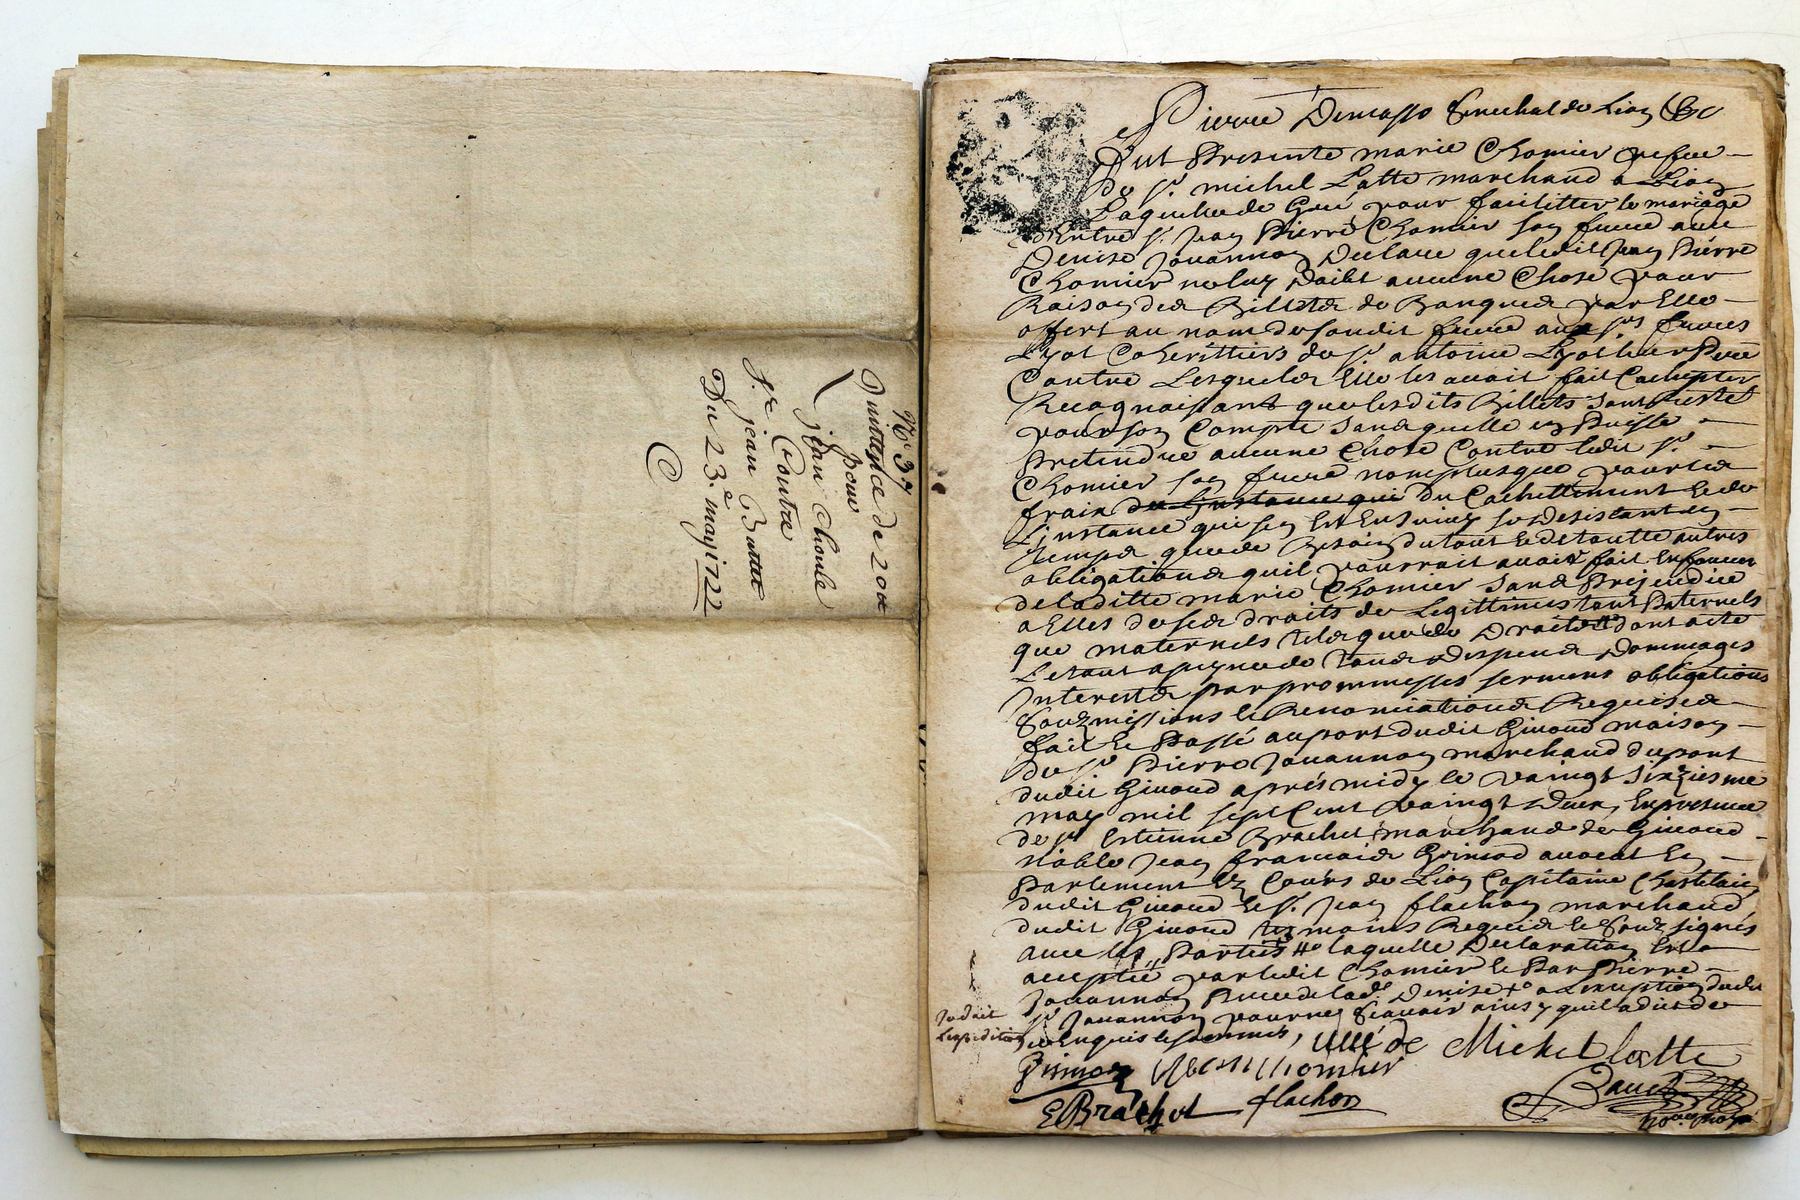 N.º 37
Quittance de 200#
pour
jean Choule
Contre
S.r jean Buttet
Du 23.e may 1722
Pierre Demasso senechal de Lion &c
fut Presente marie Chomier vefue
de s.r michel Latte marchand a Lion
Laquelle de Gré pour facilitter le mariage
d'Entre s.r Jean Pierre Chomier son frere avec
Denise Jouannon Declare que ledit Jean Pierre
Chomier ne luy doibt aucune Chose pour
Raison des Billets de Banque par Elle
offert au nom de sondit frere aux s.rs freres
Lyot Coherittiers du s.r antoine Lyot leur Pere
Contre Lesquels Elle les auoit fait Cachepter
Recognaissant que lesdits Billets sont Restés
pour son Compte sans quelle en Puisse
Pretendre aucune Chose Contre ledit s.r
Chomier son frere non plus que pour les
frais de Linstance qui du Cachettement & de
L'instance qui sen est Ensuiuy se desistant en
temps que de Besoin du tout & de toutte autres
obligations quil pourroit auoir fait En faueur
de laditte marie Chomier sans Prejudice
a Elles de ses droits de Legittimes tant Paternels
que maternels tels que de Droits dont acte
Interests par prommesses sermens obligations
souzmissions & Renonciations Requises
fait & Passé au port dudit Giuord maison
du s.r Pierre Jouannon marchand du port
dudit Giuord aprés midy le vaingt sixiesme
may mil sept Cent vaingt deux, En presence
de s.r Estienne Brachet marchand de Giuord
noble Jean francois Grimod auocat En
Parlement & Cours de Lion Capitaine Chastelain
dudit Giuord & s.r Jean flachon marchand
dudit Giuord tesmoins Requis & souz signés
auec les Parties laquelle Declaration Est
accepteé par ledit Chomier & Par Pierre
Jouannon Pere de lad.e Denise a Lexception dudit
s.r Jouannon pour ne sçauoir ainsy quil a dit de
ce Enquis & sommés,
Jay dait
Lexpedition
Marie Chomier
veufe de Michel Latte
E Brachet
flachon